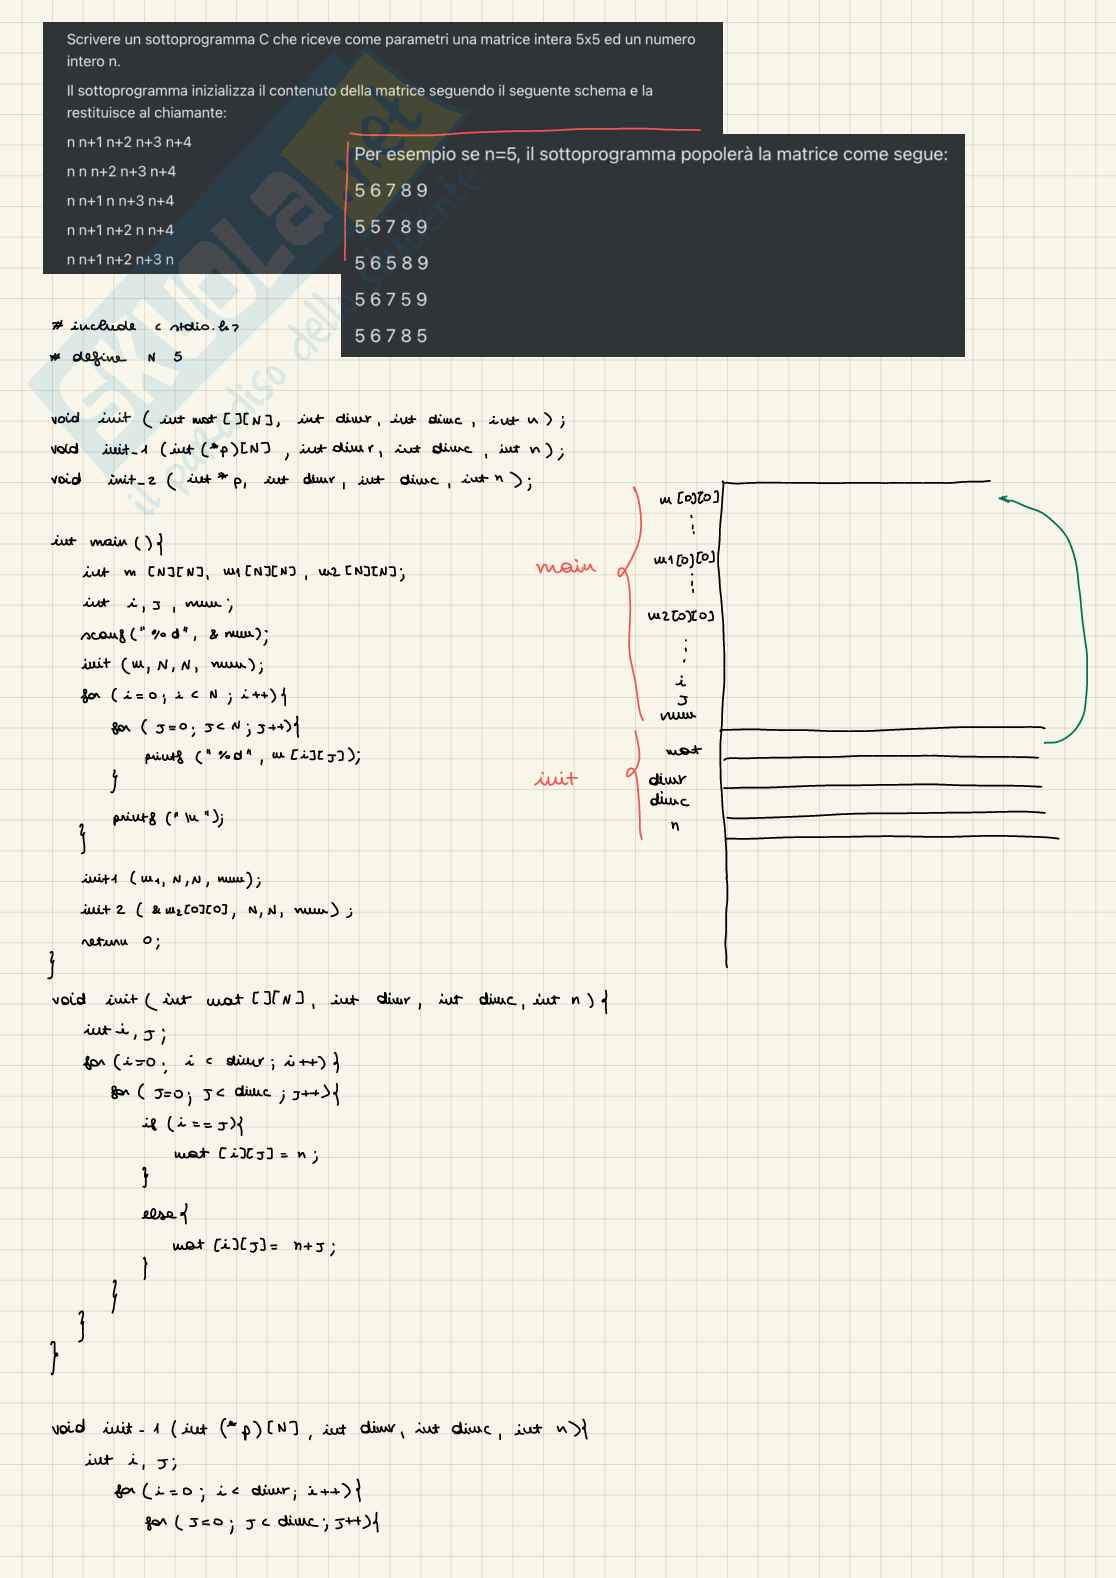 Scrivere un sottoprogramma C che riceve come parametri una matrice intera 5x5 ed un numero
intero n.
Il sottoprogramma inizializza il contenuto della matrice seguendo il seguente schema e la
restituisce al chiamante:
n n+1 n+2 n+3 n+4
n n n+2 n+3 n+4
n n+1 n n+3 n+4
n n+1 n+2 n n+4
n n+1 n+2 n+3 n
Per esempio se n=5, il sottoprogramma popolerà la matrice come segue:
5 6 7 8 9
5 5 7 8 9
5 6 5 8 9
5 6 7 5 9
5 6 7 8 5
SKUOLA.net
# include < stdio.h>
# define N 5
void init ( int mat [][N], int dimr, int dimc, int n );
void init_1 (int (*p)[N], int dimr, int dimc, int n );
void init_2 ( int *p, int dimr, int dimc, int n );
int main () {
int m [N][N], m1[N][N], m2[N][N];
int i, J, num;
scanf("%d", & num);
init (m, N, N, num);
for (i=0; i < N; i++){
for ( J=0; J<N; J++){
printf ("%d", m [i][J]);
}
printf ("\n");
}
init1 (m1, N,N, num);
init 2 ( & m2[0][0], N,N, num) ;
return 0;
}
main
m [0][0]
m1[0][0]
m2[0][0]
i
J
num
init
mat
dimr
dimc
n
void init ( int mat [][N], int dimr, int dimc, int n ) {
int i, J;
for (i=0; i < dimr; i++){
for ( J=0; J< dimc ; J++){
if (i == J){
mat [i][J] = n;
}
else {
mat [i][J] = n+J;
}
}
}
}
void init_1 (int (*p)[N], int dimr, int dimc, int n){
int i, J;
for (i=0; i< dimr; i++){
for ( J=0; J< dimc; J++){